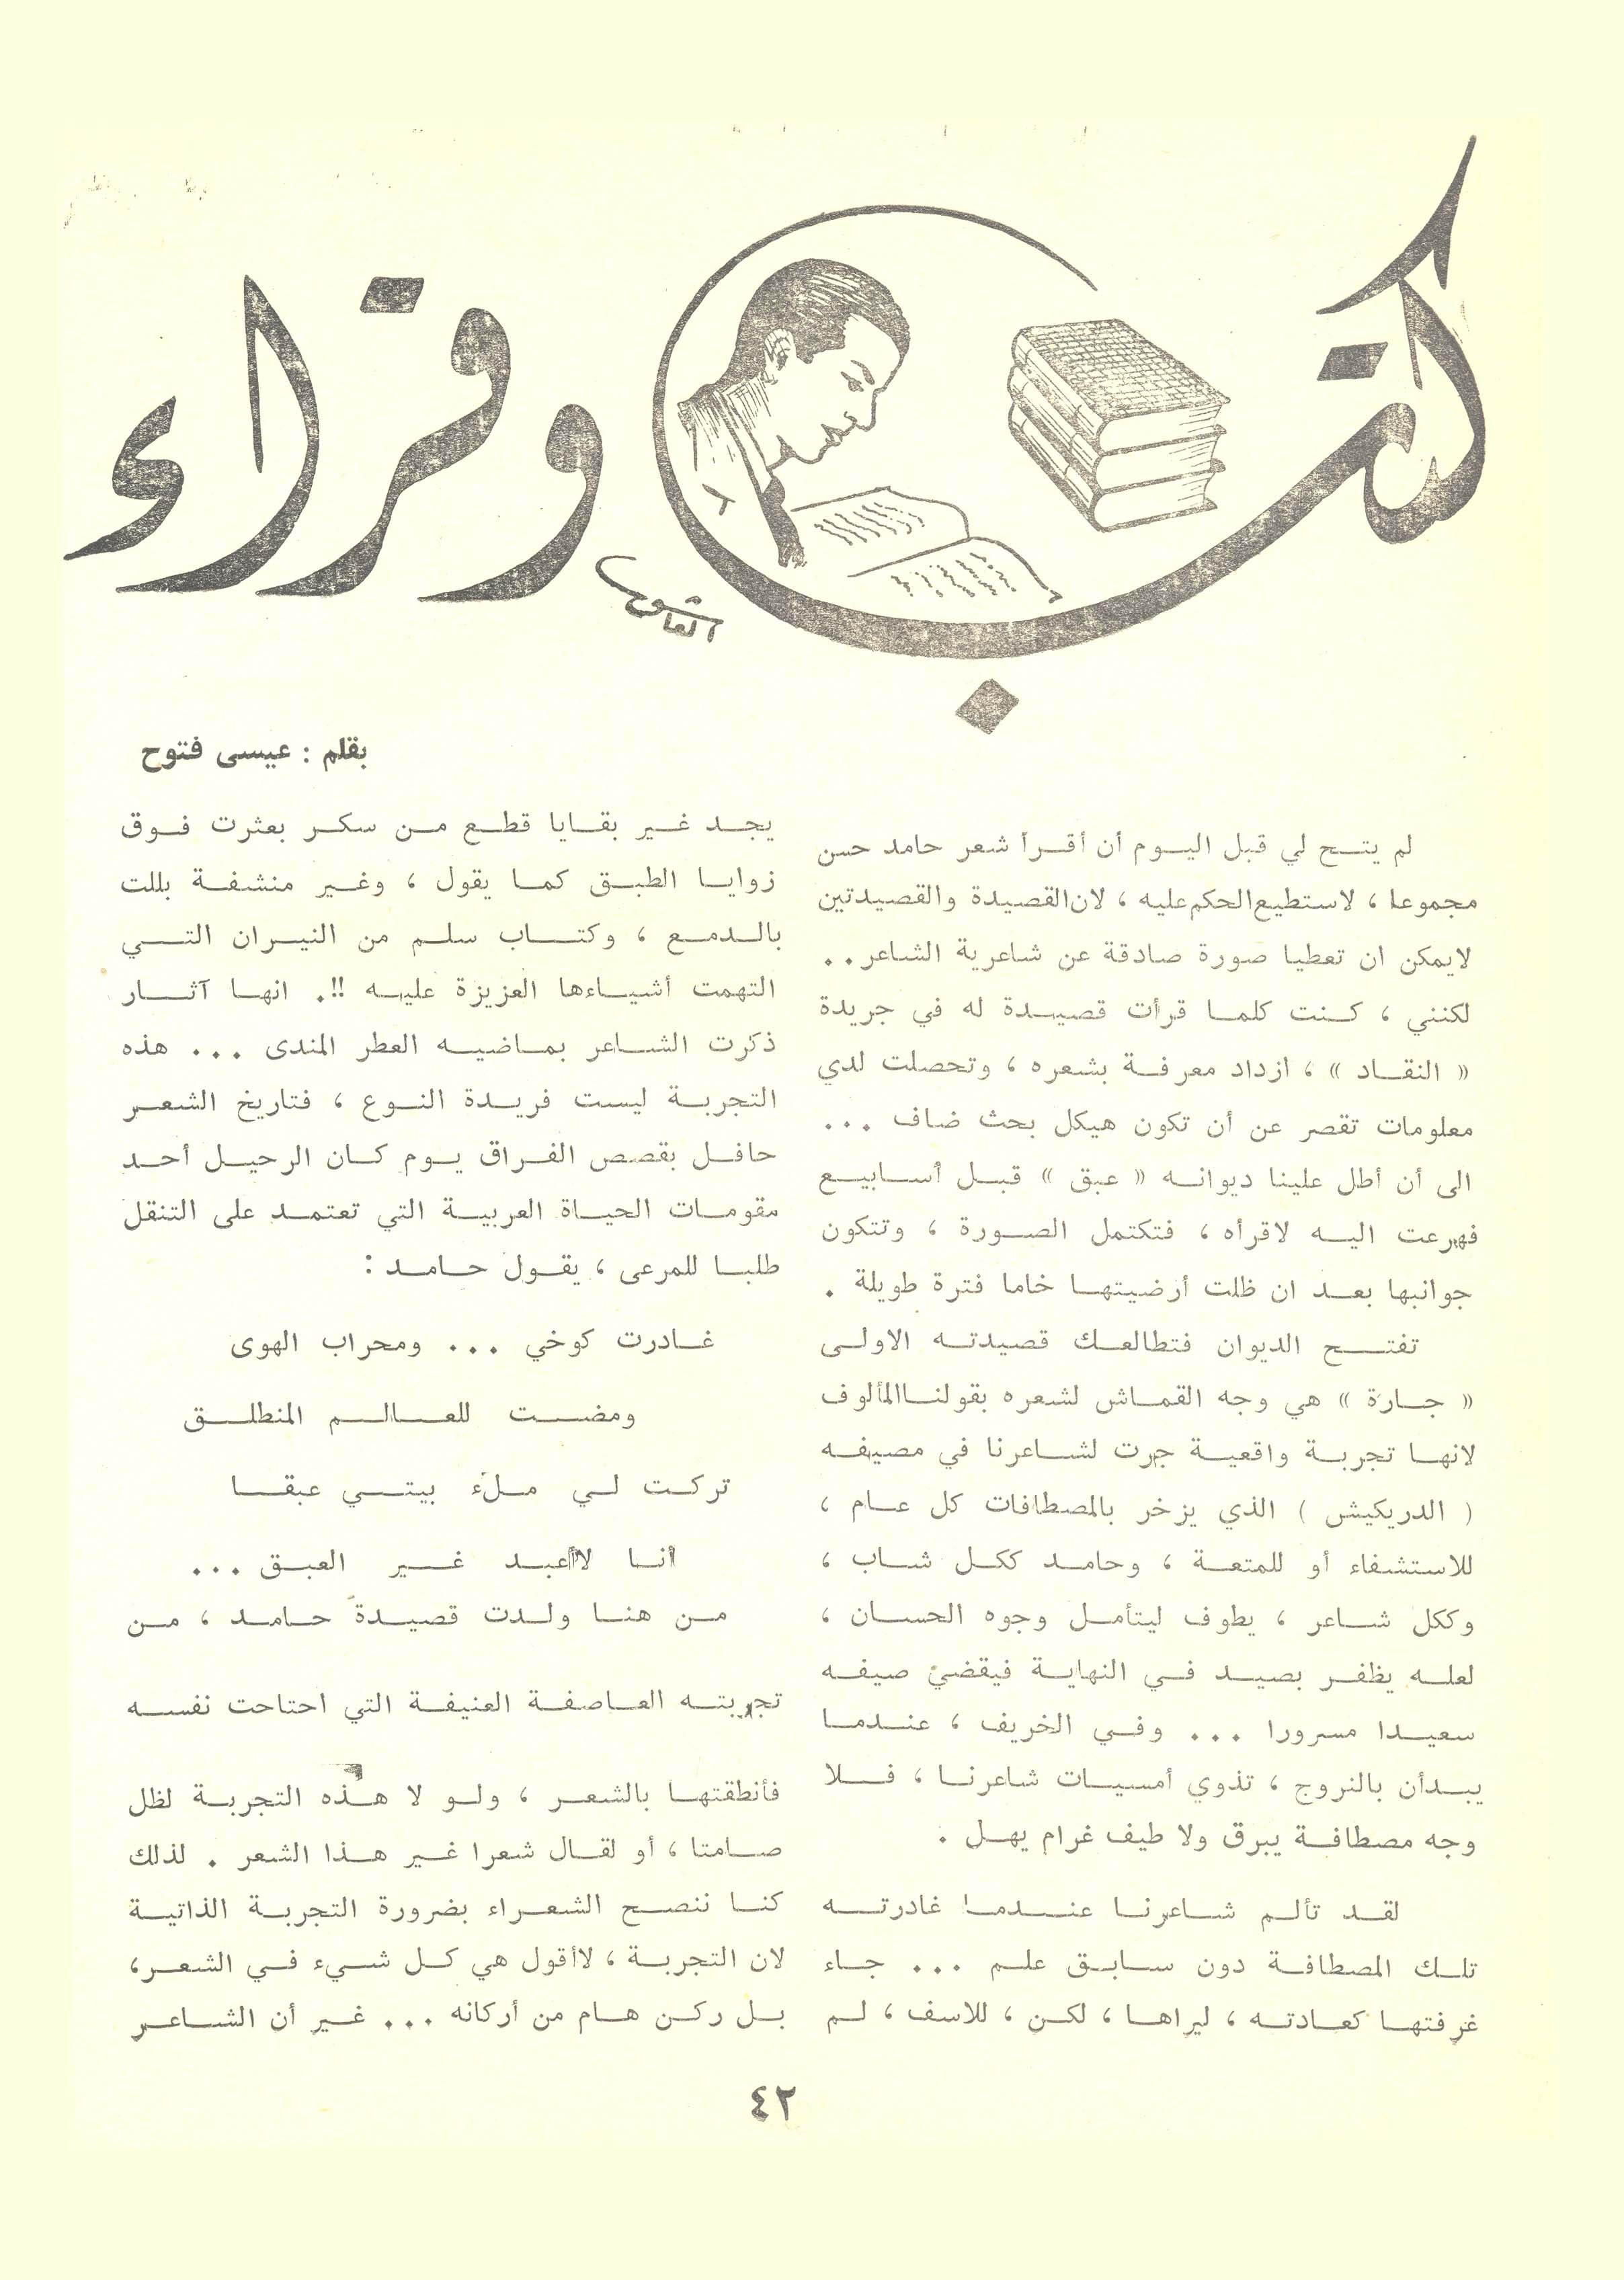 كتب وقراء
بقلم : عيسى فتوح
لم يتح لي قبل اليوم أن أقرأ شعر حامد حسن
مجموعا ، لاستطيع الحكم عليه ، لان القصيدة والقصيدتين
لايمكن ان تعطيا صورة صادقة عن شاعرية الشاعر . .
لكنني ، كنت كلما قرأت قصيدة له في جريدة
« النقاد » ، ازداد معرفة بشعره ، وتحصلت لدي
معلومات تقصر عن أن تكون هيكل بحث ضاف ...
الى أن أطل علينا ديوانه « عبق » قبل أسابيع
فهرعت اليه لاقرأه ، فتكتمل الصورة ، وتتكون
جوانبها بعد ان ظلت أرضيتها خاما فترة طويلة .
تفتح الديوان فتطالعك قصيدته الاولى
« جارة » هي وجه القماش لشعره بقولنا المألوف
لانها تجربة واقعية جرت لشاعرنا في مصيفه
( الدريكيش ) الذي يزخر بالمصطافات كل عام ،
للاستشفاء أو للمتعة ، وحامد ككل شاب ،
وككل شاعر ، يطوف ليتأمل وجوه الحسان ،
لعله يظفر بصيد في النهاية فيقضي صيفه
سعيدا مسرورا ... وفي الخريف ، عندما
يبدأن بالنروج ، تذوي أمسيات شاعرنا ، فلا
وجه مصطافة يبرق ولا طيف غرام يهل .
لقد تألم شاعرنا عندما غادرته
تلك المصطافة دون سابق علم ... جاء
غرفتها كعادته ، ليراها ، لكن ، للاسف ، لم
يجد غير بقايا قطع من سكر بعثرت فوق
زوايا الطبق كما يقول ، وغير منشفة بللت
بالدمع ، وكتاب سلم من النيران التي
التهمت أشياءها العزيزة عليه !!. انها آثار
ذكرت الشاعر بماضيه العطر المندى ... هذه
التجربة ليست فريدة النوع ، فتاريخ الشعر
حافل بقصص الفراق يوم كان الرحيل أحد
مقومات الحياة العربية التي تعتمد على التنقل
طلبا للمرعى ، يقول حامد :
غادرت كوخي ... ومحراب الهوى
ومضت للعالم المنطلق
تركت لي ملء بيتي عبقا
أنا لاأعبد غير العبق ...
من هنا ولدت قصيدة حامد ، من
تجربته العاصفة العنيفة التي احتاحت نفسه
فأنطقتها بالشعر ، ولو لا هذه التجربة لظل
صامتا ، أو لقال شعرا غير هذا الشعر . لذلك
كنا ننصح الشعراء بضرورة التجربة الذاتية
لان التجربة ، لاأقول هي كل شيء في الشعر ،
بل ركن هام من أركانه ... غير أن الشاعر
٤٢